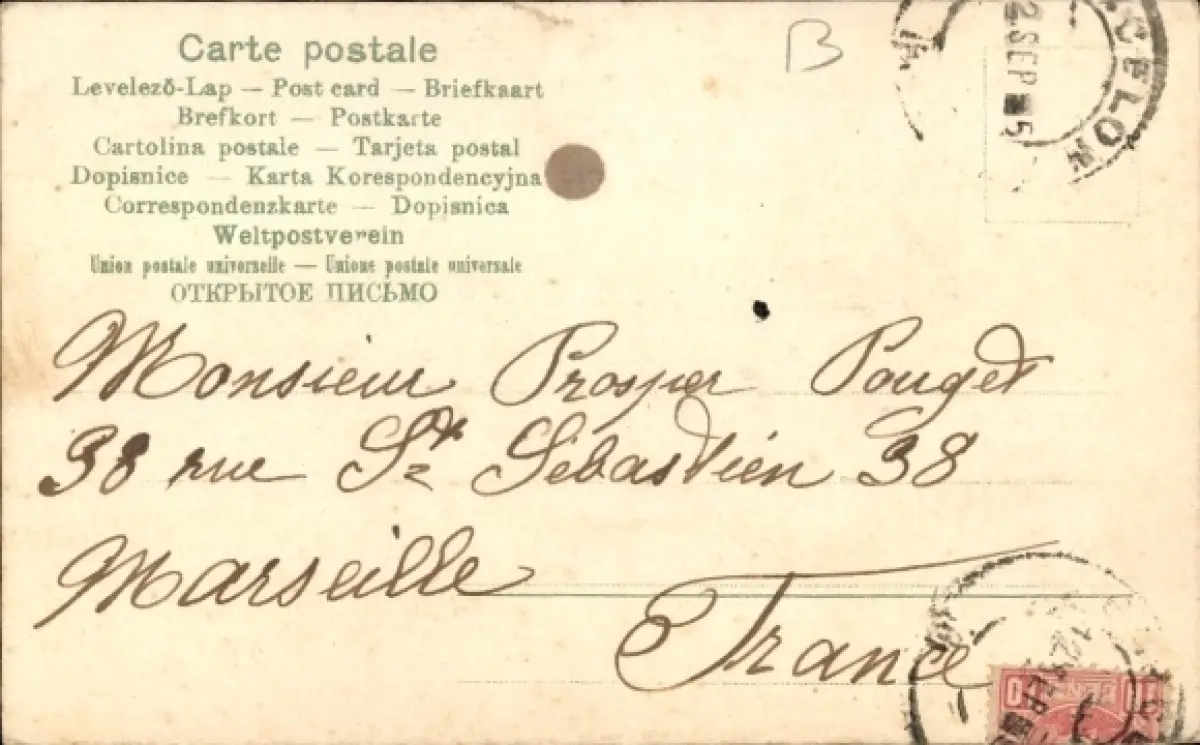 Carte postale
B
Levelező-Lap — Post card — Briefkaart
Brefkort — Postkarte
Cartolina postale — Tarjeta postal
Dopisnice — Karta Korespondencyjna
Correspondenzkarte — Dopisnica
Weltpostverein
Union postale universelle — Unione postale universale
ОТКРЫТОЕ ПИСЬМО
2 SEP 5
Monsieur Prosper Pouget
38 rue St Sébastien 38
Marseille
France
12 SEP
10 10